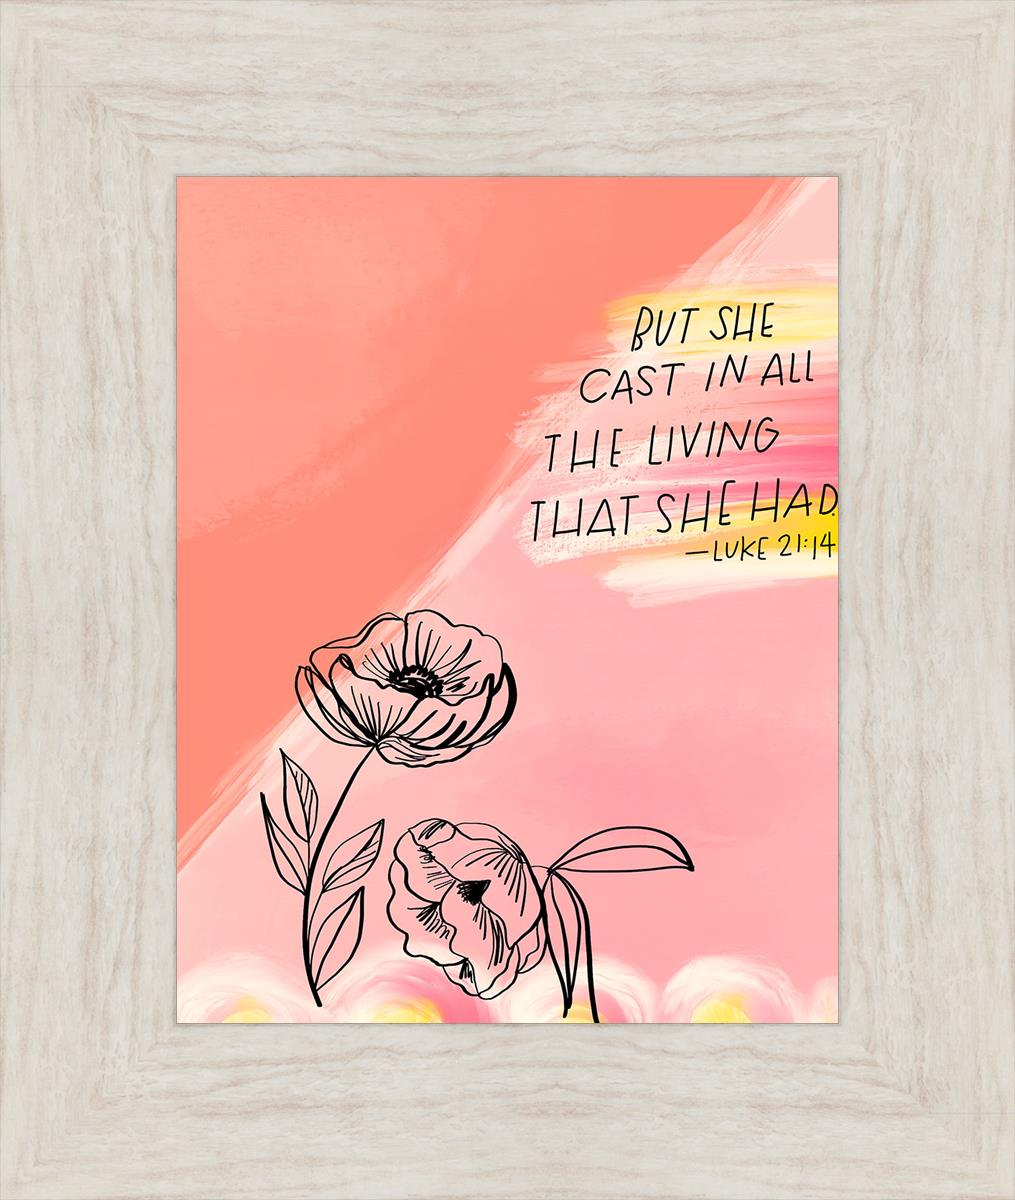 BUT SHE
CAST IN ALL
THE LIVING
THAT SHE HAD.
—LUKE 21:14